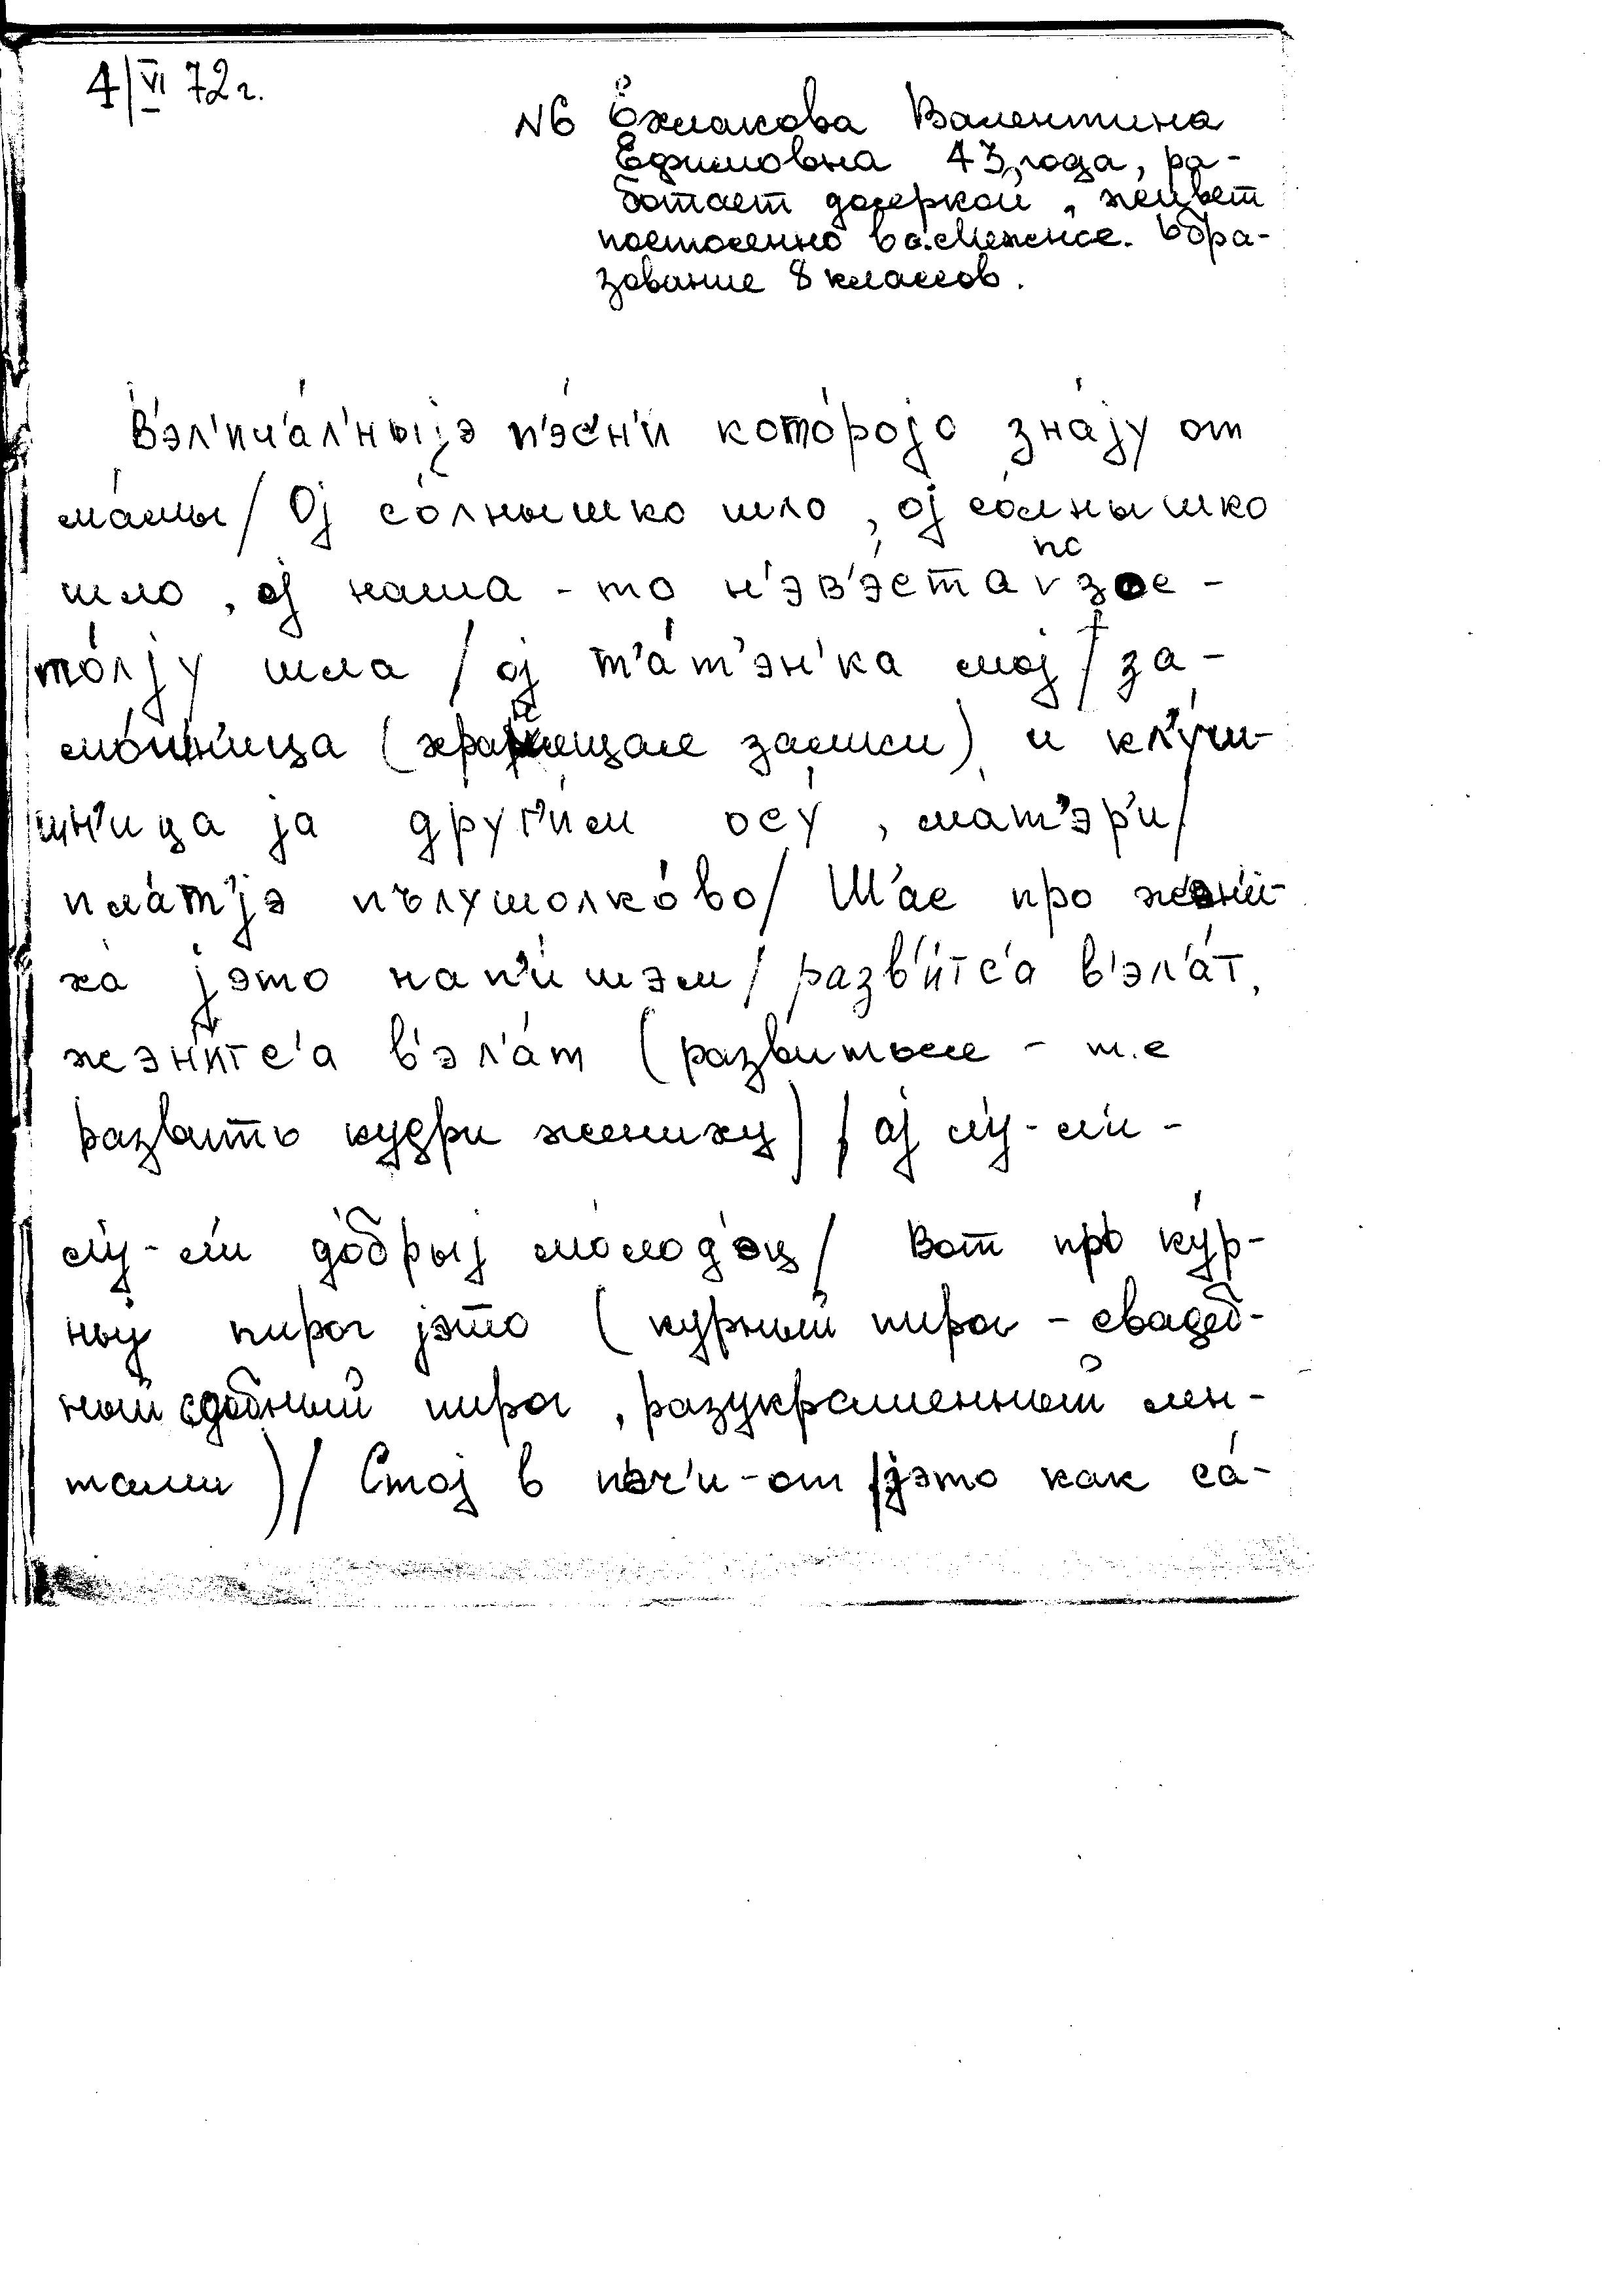 4/VI 72г.
N6 Ёхлакова Валентина
Ефимовна 43 года, ра-
ботает дояркой, живёт
постоянно в с. Межнье. Обра-
зование 8 классов.
В'эл'ич'а́л'ныјэ п'э́с'н'и кото́ројо зна́ју от
ма́мы / Ој со́лнышко шло, ој со́лнышко
шло, ој наша-то н'эв'э́ста по зас-
то́лју шла / ој т'а́т'эн'ка мој / за-
мо́шн'ица (хранящая замки) и кл'у́чи-
шн'ица ја друг'и́м осу́, мат'эр'и /
пла́т'јэ пълушолко́во / Ш'ас про жэн'и-
ха́ јэто нап'и́шэм / разв'и́тс'а в'эл'а́т,
жэн'и́тс'а в'эл'а́т (развиться - т.е
развить кудри жениху) / ај л'у́-л'и-
л'у́-л'и до́брыј мо́лодэц / Вот про ку́р-
ныј пирог јэто (курный пирог - свадеб-
ный сдобный пирог, разукрашенный лен-
тами) / Стој в п'эч'и-от / јэто как са́-